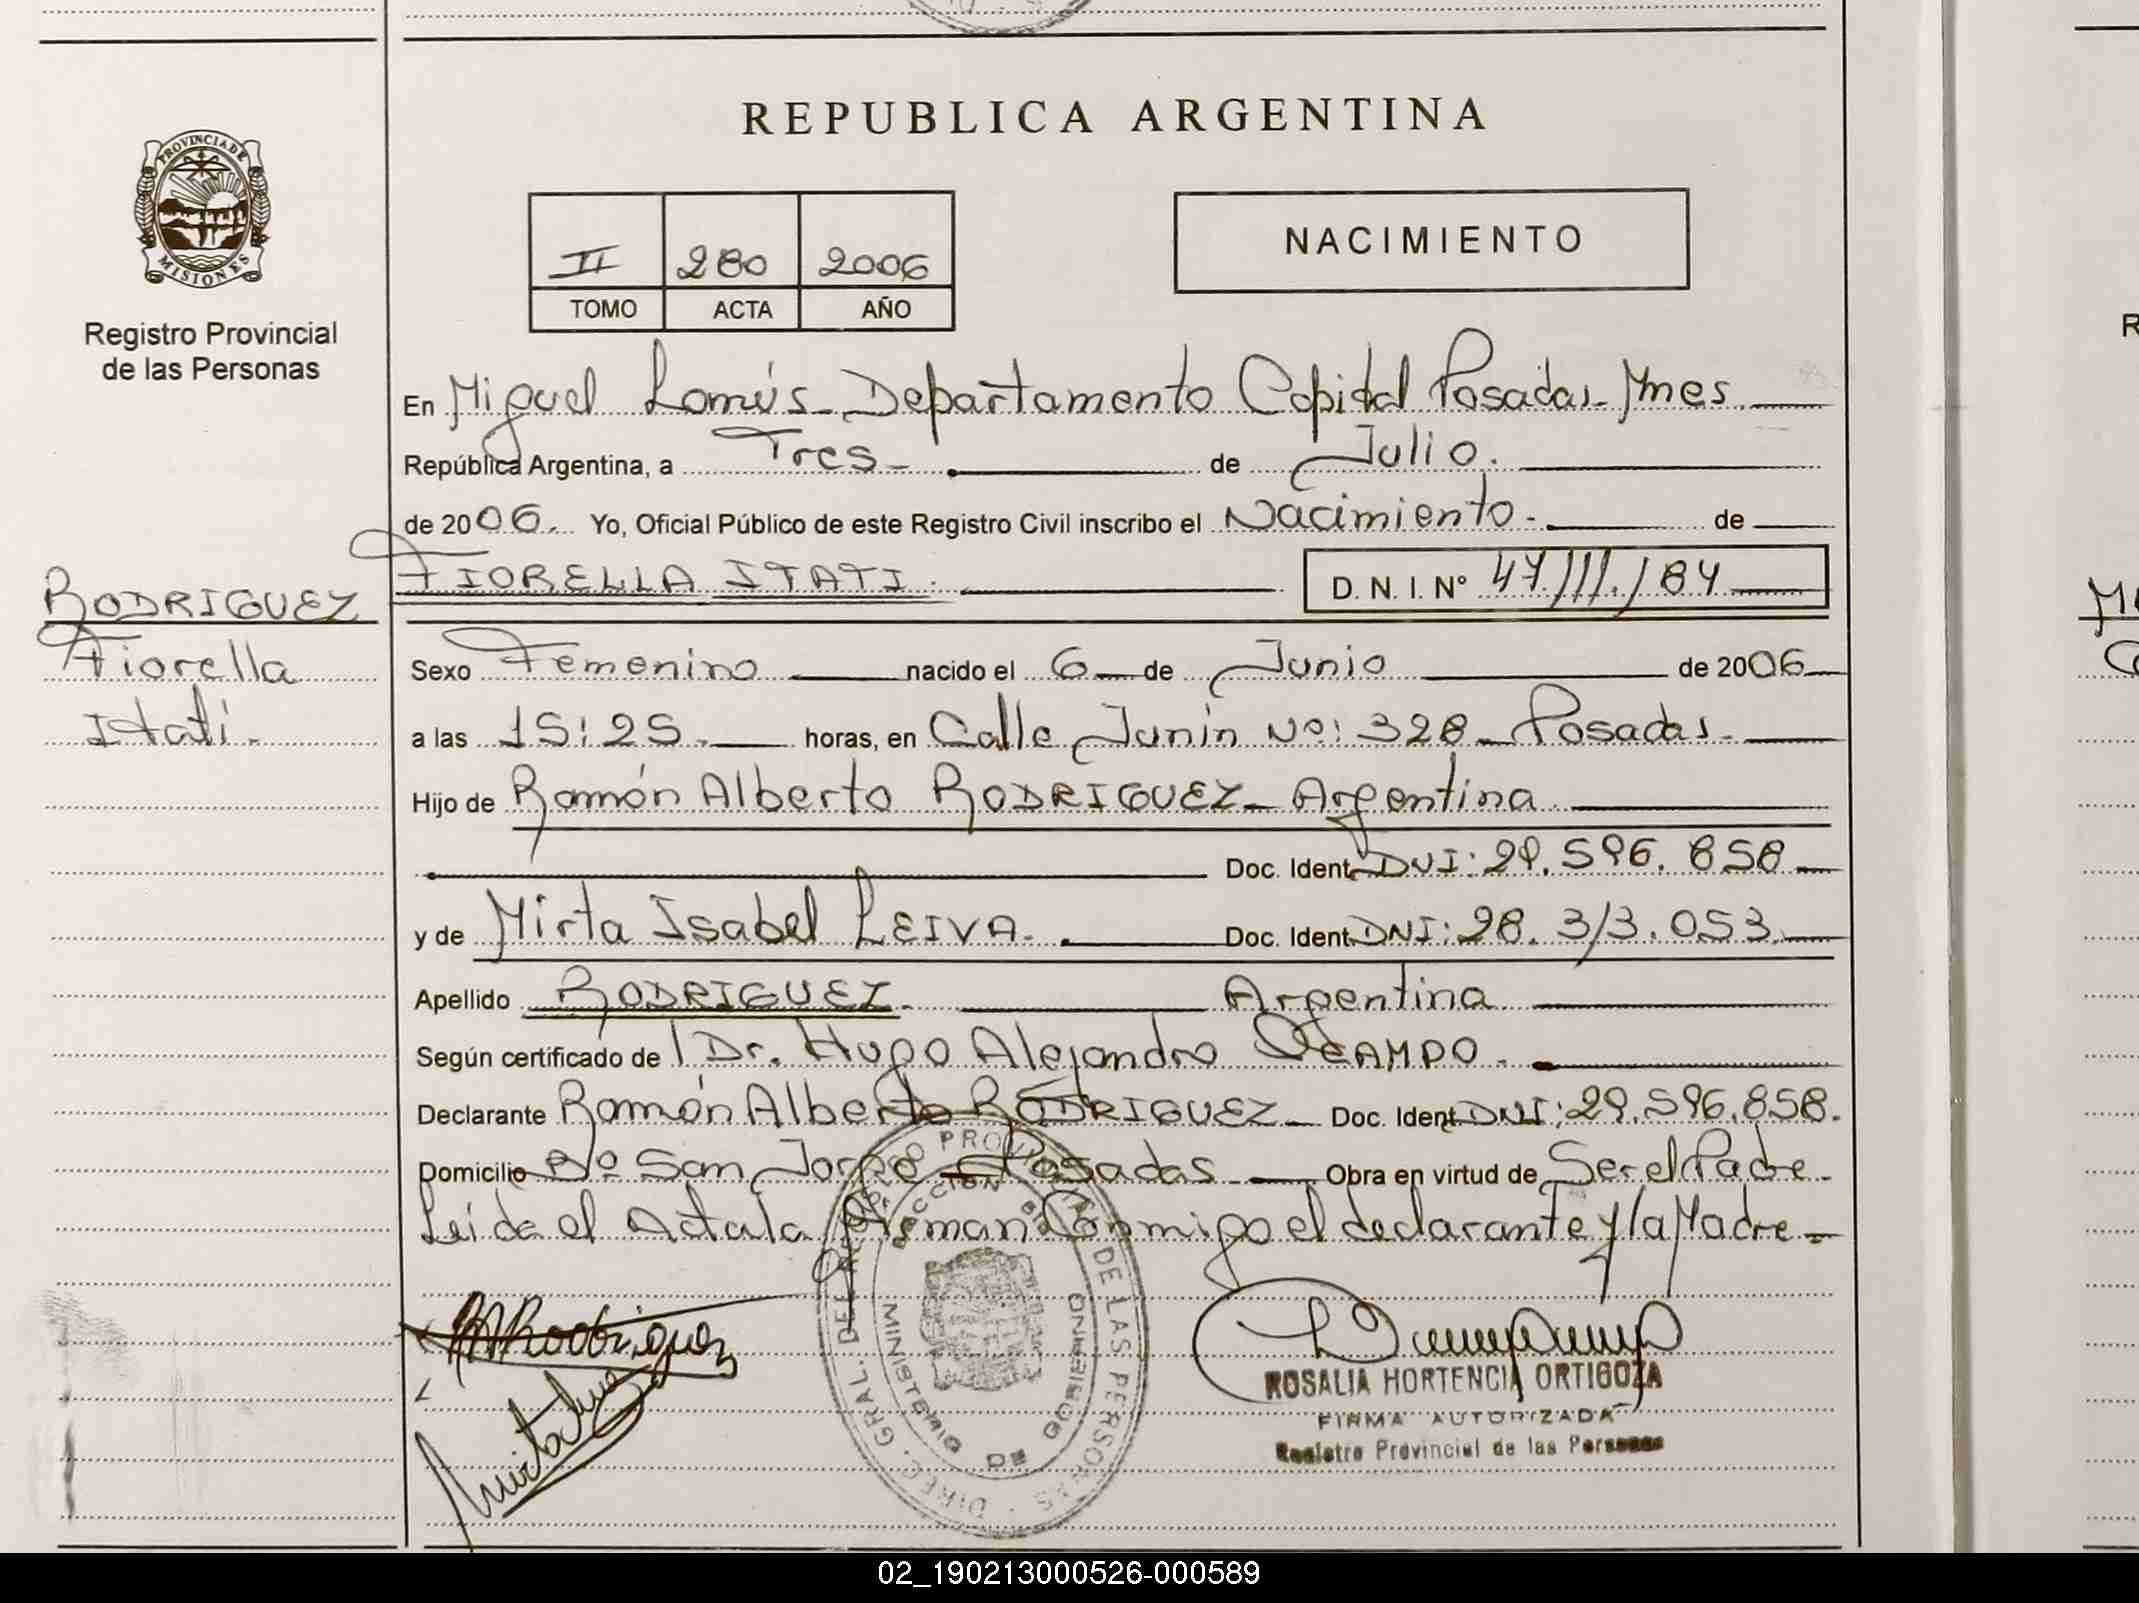 REPUBLICA ARGENTINA
PROVINCIA DE
MISIONES
Registro Provincial
de las Personas
II 280 2006
TOMO ACTA AÑO
NACIMIENTO
En Miguel Lanús - Departamento Capital Posadas - Mnes
República Argentina, a Tres - de Julio.
de 2006. Yo, Oficial Público de este Registro Civil inscribo el Nacimiento - de
FIORELLA ITATI. D. N. I. Nº 47.111.184
RODRIGUEZ
Fiorella
Itatí -
Sexo Femenino nacido el 6 de Junio de 2006
a las 15:25 horas, en Calle Junín Nº: 328 - Posadas -
Hijo de Ramón Alberto RODRIGUEZ - Argentina
Doc. Ident. DNI: 29.596.858
y de Mirta Isabel LEIVA. Doc. Ident. DNI: 28.313.053
Apellido RODRIGUEZ - Argentina
Según certificado de Dr. Hugo Alejandro OCAMPO -
Declarante Ramón Alberto RODRIGUEZ - Doc. Ident. DNI: 29.596.858.
Domicilio Bº San Jorge - Posadas - Obra en virtud de Ser el Padre -
Leída el Acta la Firman Conmigo el declarante y la Madre -
DIREC. GRAL. DEL REGISTRO PROVINCIAL DE LAS PERSONAS
MINISTERIO DE GOBIERNO
ROSALIA HORTENCIA ORTIGOZA
FIRMA AUTORIZADA
Registro Provincial de las Personas
02_190213000526-000589